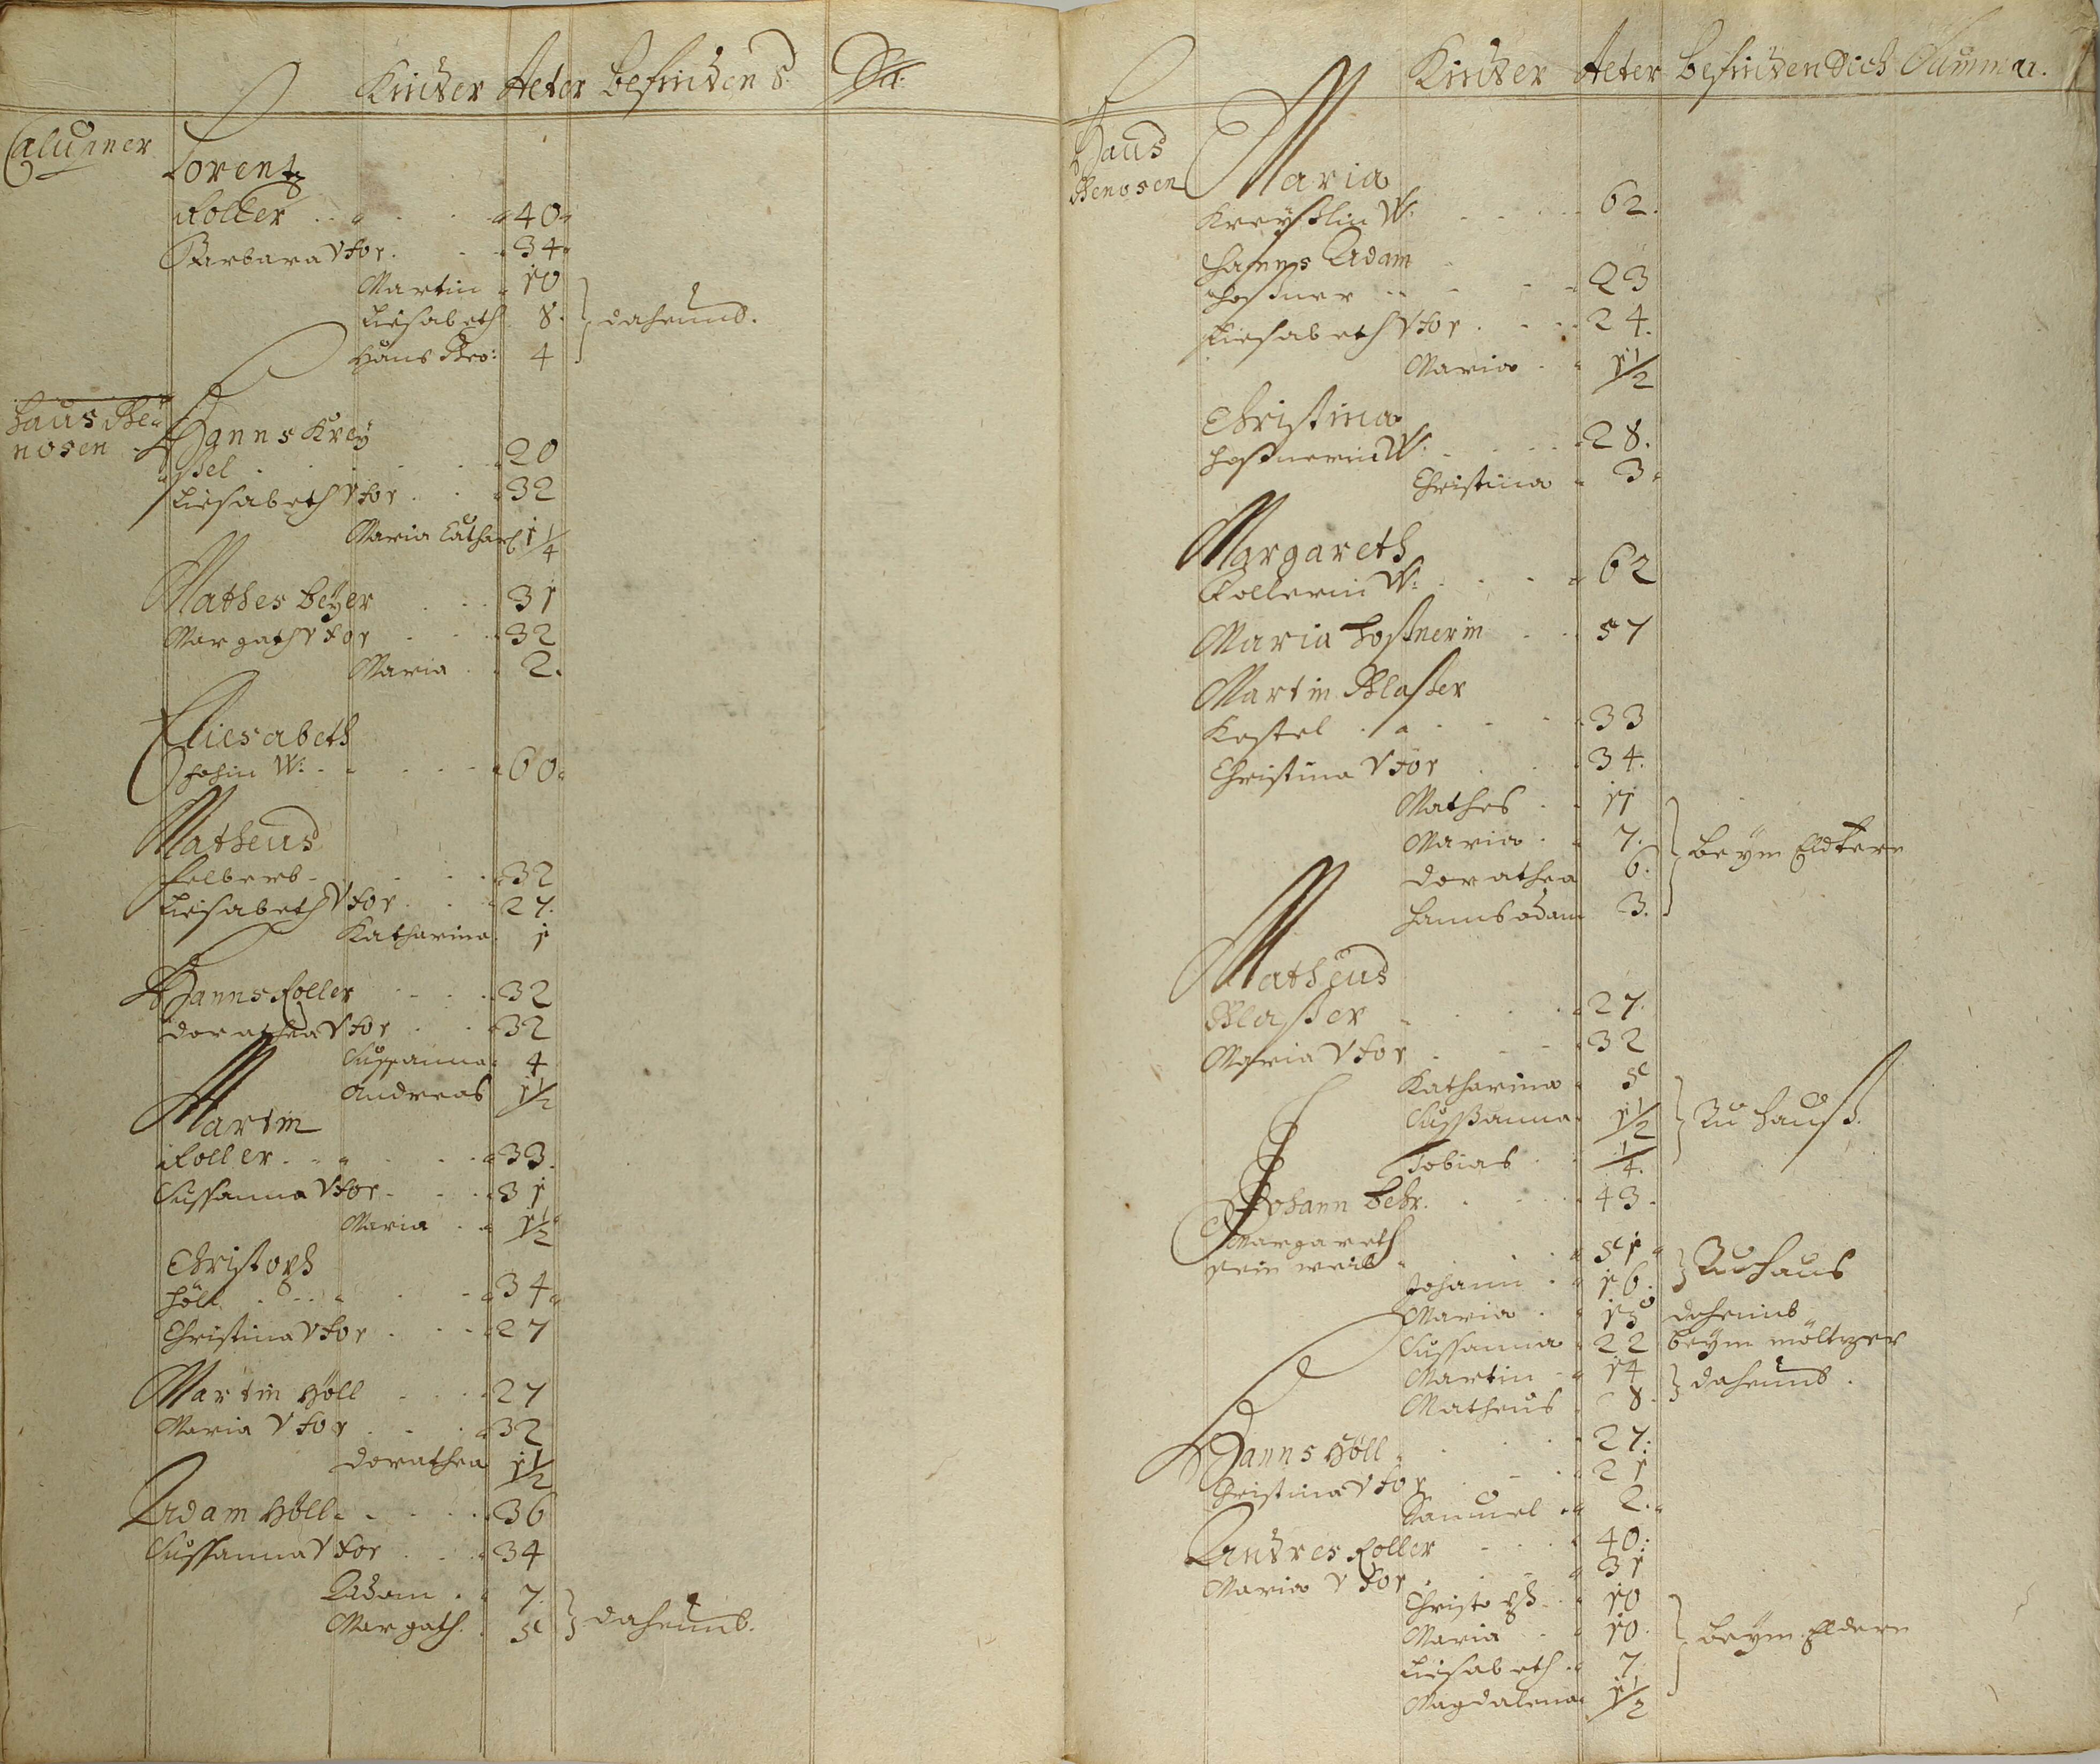 Kinder Aeter befinden S.
Calupner
Lorentz
Roller 40
Barbara Vxor. 34
Martin 10
Liesabeth 8.
daheimb.
Hans Geo: 4
Haus Ge„
nosen
Hanns Krey
„ßel 20
Liesabeth Vxor 32
Maria Cathar 1 1/4
Mathes Beyer 31
Margath Vxor 32
Maria 2.
Eliesabeth
W: 60
Matheus
32
Liesabeth Vxor 27.
Katharina 1
Hanns Roller 32
Dorathea Vxor 32
Sussanna 4
Andreas 1 1/2
Martin
Roller 33.
Sussanna Vxor 31
Maria 1 1/2
Christoph
Höll 34
Christina Vxor 27
Martin Höll 27
Maria Vxor 32
Dorathea 1 1/2
Adam Höll 36
Sussanna Vxor 34
Adam 7.
Margath. 5
daheimb.
Kinder Aeter befinden Sich Summa.
Haus
Genosen
Maria
Kreyßlin W: 62.
Hanns Adam
Hoßner 23
Liesabeth Vxor 24.
Maria 1 1/2
Christina
Hoßnerin W: 28.
Christina 3
Margareth
Rollerin W: 62
Maria Hoßnerin 57
Martin Glaßer
Kestel 33
Christina Vxor 34.
Mathes 11
Maria 7.
beym Eldtern
Dorathea 6.
Hanns Adam 3.
Matheus
Glaßer 27.
Maria Vxor 32
Katharina 5
Sußanna 1 1/2
Zu Hauß.
Tobias 1/4.
Johann Behr. 43.
Margareth
sein weib 51
Johann 16.
Zu Haus
Maria 15 daheimb
Sussanna 22 beym möltzer
Martin 14
Matheus 8.
daheimb.
Hanns Höll 27:
Christina Vxor 21
Samuel 2.
Andres Roller 40:
Maria Vxor 31
Christoph 10
Maria 10.
beym Eldern
Liesabeth 7
Magdalena 1 1/2